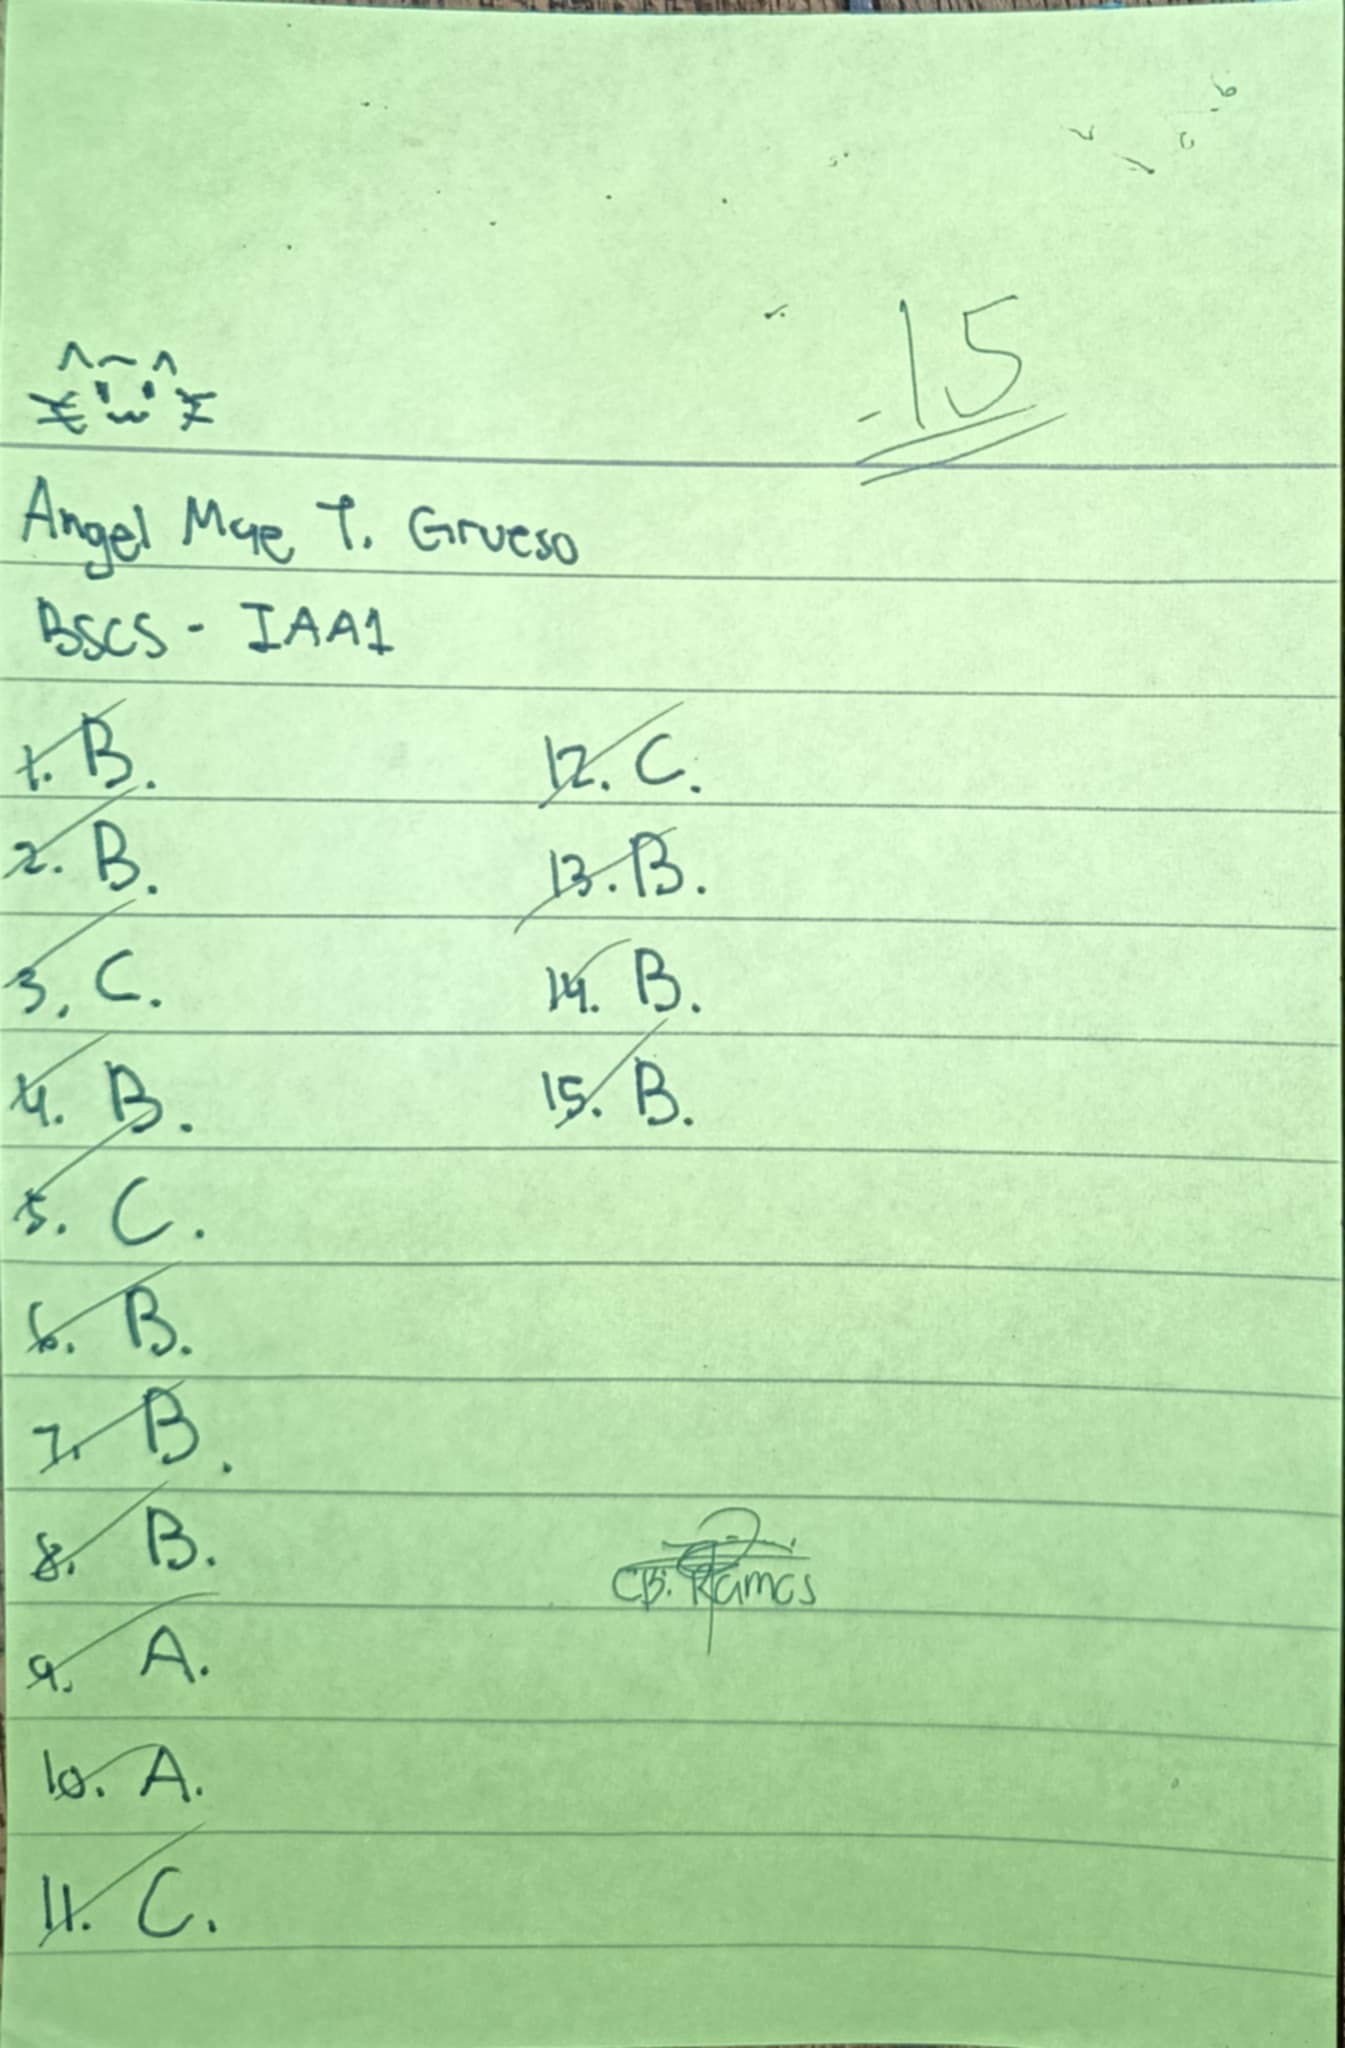 15
Angel Mae T. Grueso
BSCS - IAA1
1. B.
2. B.
3. C.
4. B.
5. C.
6. B.
7. B.
8. B.
9. A.
10. A.
11. C.
12. C.
13. B.
14. B.
15. B.
CB. Ramos